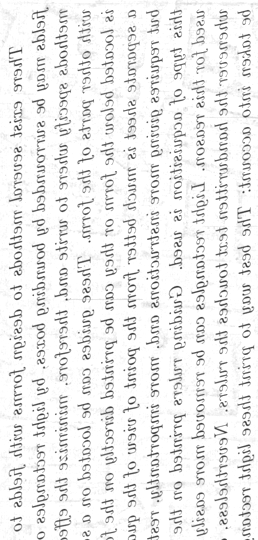 There exist several methods to design forms with fields to
fields may be surrounded by bounding boxes, by light rectangles o
methods specify where to write and, therefore, minimize the effe
with other parts of the form. These guides can be located on a s
is located below the form or they can be printed directly on the f
a separate sheet is much better from the point of view of the qua
but requires giving more instructions and, more importantly, res
this type of acquisition is used. Guiding rulers printed on the
used for this reason. Light rectangles can be removed more easily
whenever the handwritten text touches the rulers. Nevertheless,
be taken into account: The best way to print these light rectan